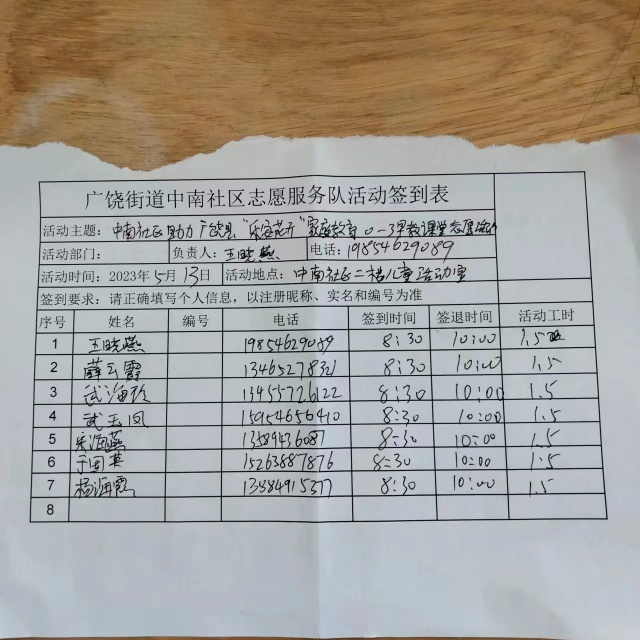 广饶街道中南社区志愿服务队活动签到表
活动主题：中南社区助力广饶县“乐安花开”家庭教育0-3早教课堂志愿活动
活动部门： 负责人：王晓燕 电话：19854629089
活动时间：2023年5月13日 活动地点：中南社区二楼儿童活动室
签到要求：请正确填写个人信息，以注册昵称、实名和编号为准
序号 姓名 编号 电话 签到时间 签退时间 活动工时
1 王晓燕 19854629089 8:30 10:00 1.5
2 薛云霞 13465278321 8:30 10:00 1.5
3 武海玲 13455726122 8:30 10:00 1.5
4 武玉凤 15954656410 8:30 10:00 1.5
5 宋海燕 13589436087 8:30 10:00 1.5
6 于国英 15263887876 8:30 10:00 1.5
7 杨海霞 13884915377 8:30 10:00 1.5
8